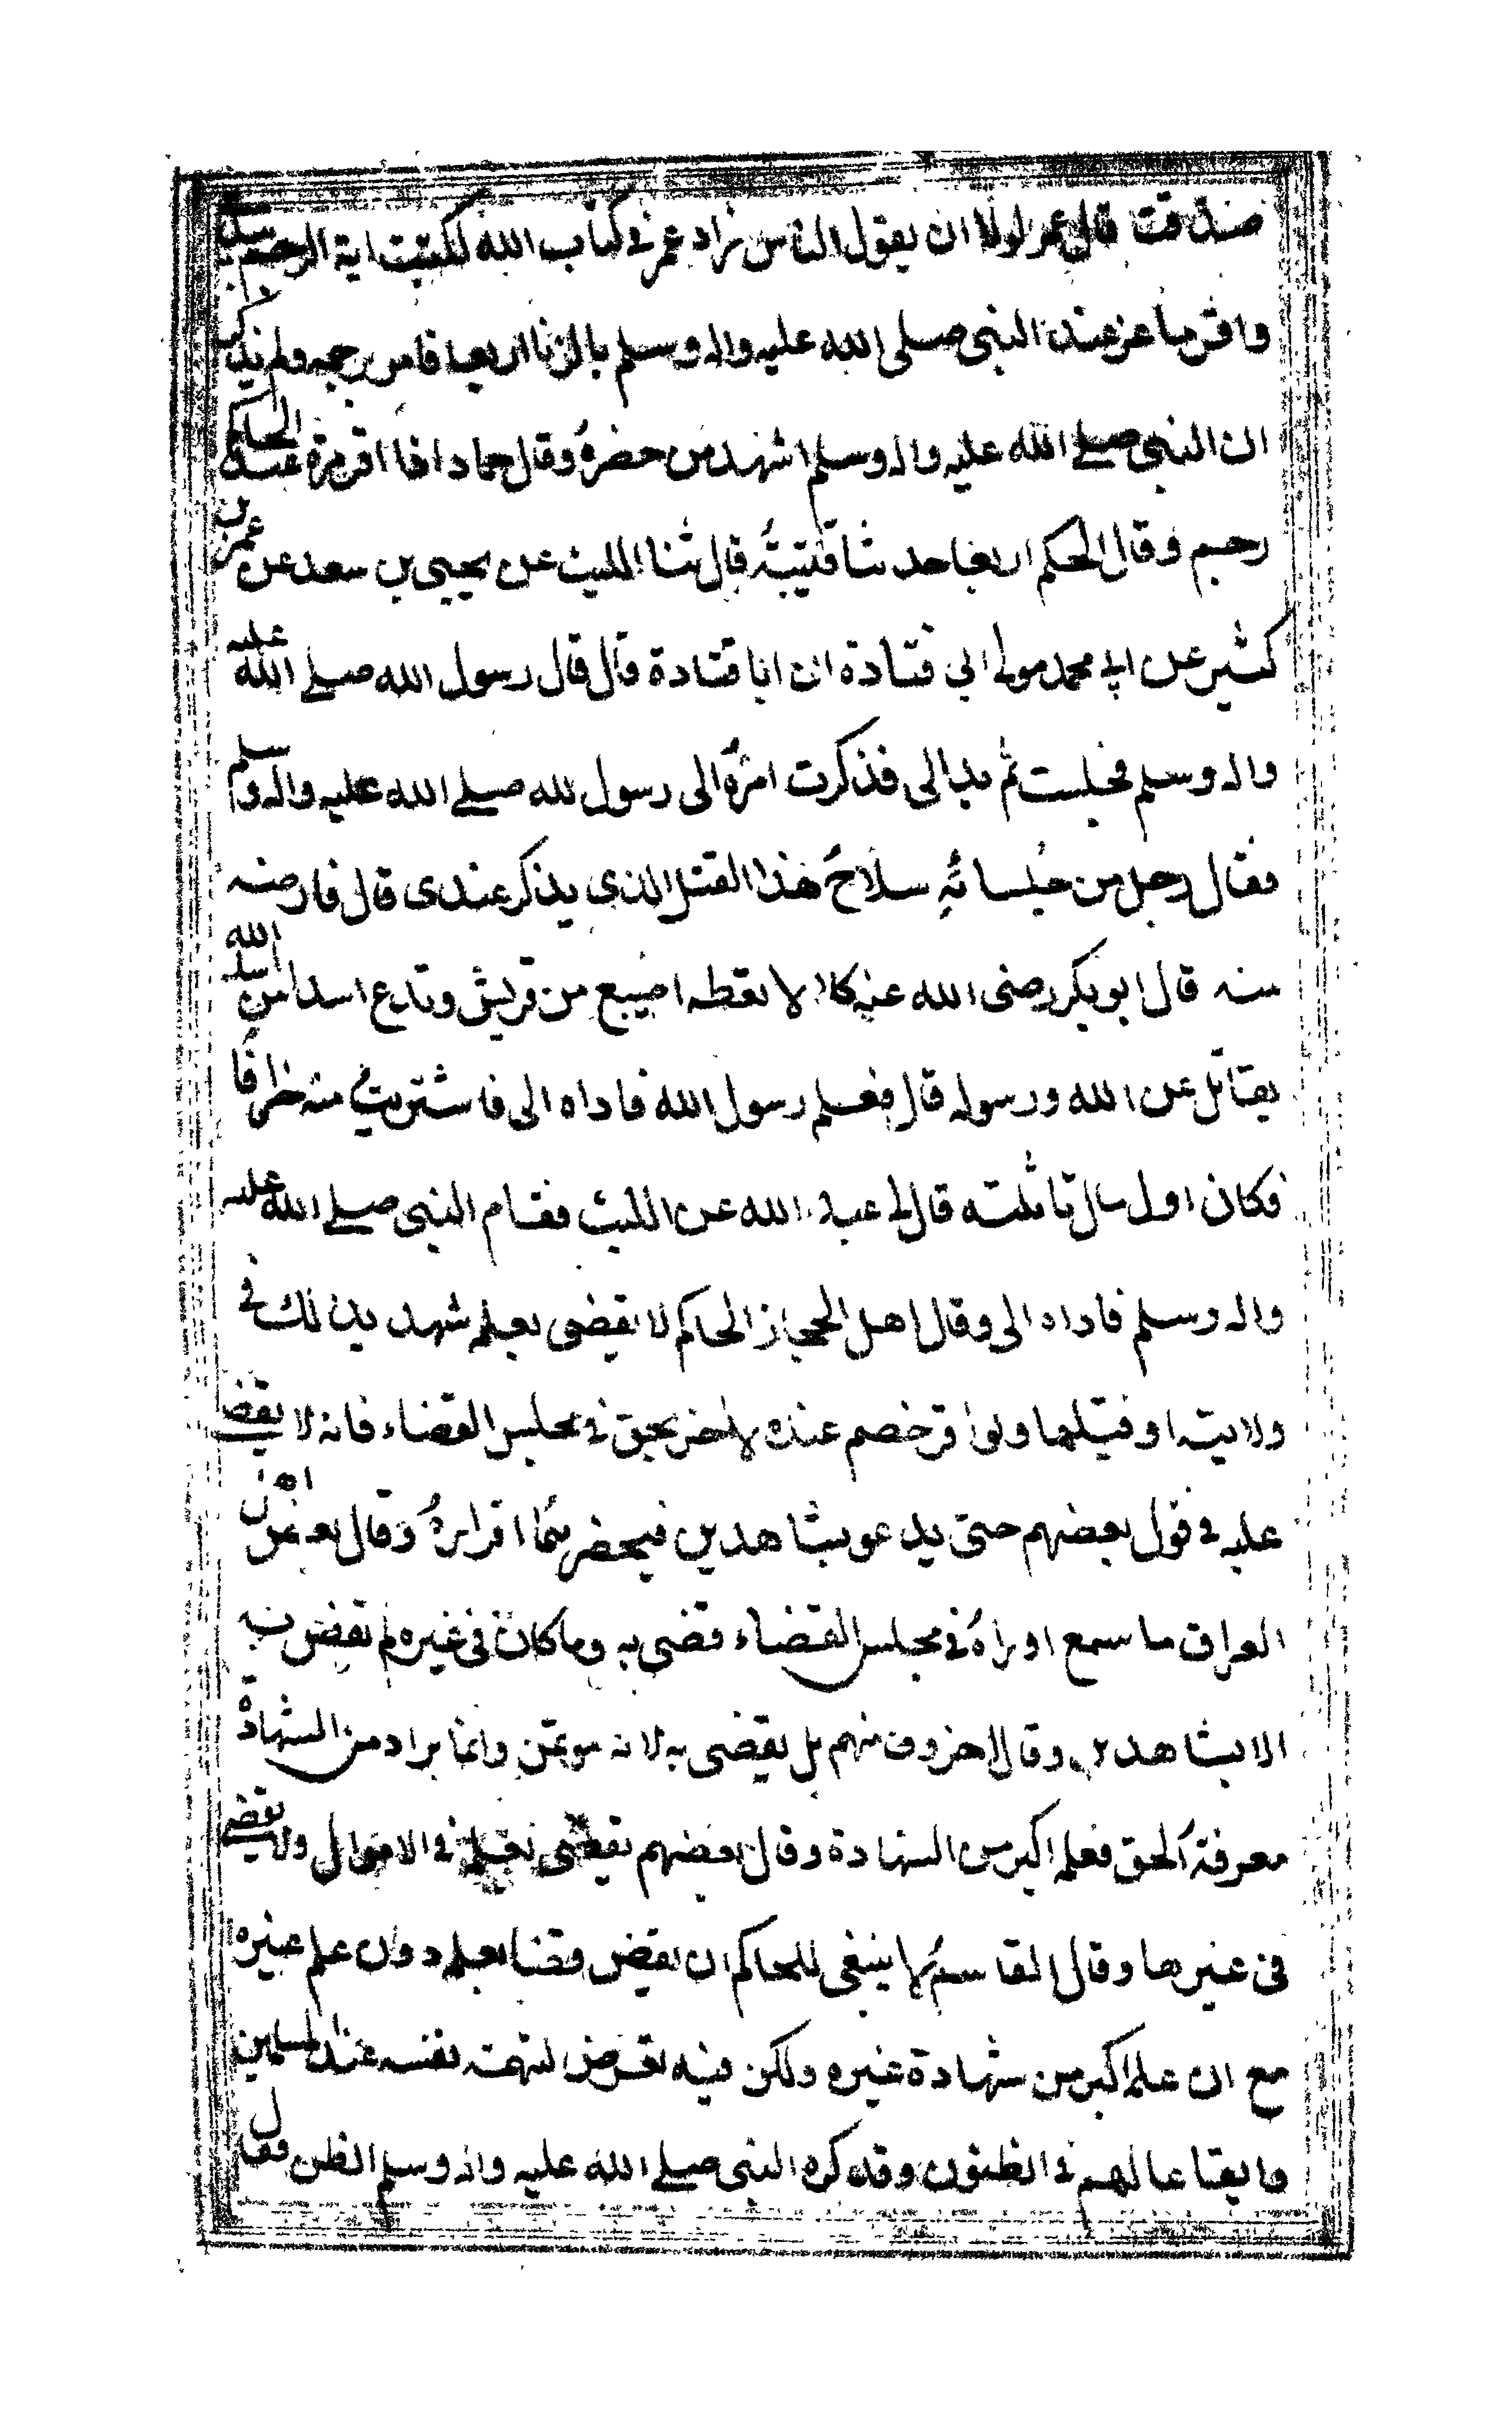 صدقت قال عمر لولا ان يقول الناس زاد عمر في كتاب الله لكتبت اية الرجم بيدي
واقر ماعز عند النبي صلى الله عليه واله وسلم بالزنا اربعا فامر برجمه ولم يذكر
ان النبي صلى الله عليه واله وسلم اشهد من حضره وقال حماد اذا اقر مرة عند الحاكم
رجم وقال الحكم اربعا حدثنا قتيبة قال ثنا الليث عن يحيى بن سعد عن عمر بن
كثير عن ابي محمد مولى ابي قتادة ان ابا قتادة قال قال رسول الله صلى الله عليه
واله وسلم فجلست ثم بدا لي فذكرت امره الى رسول لله صلى الله عليه واله وسلم
فقال رجل من جلسائه سلاح هذا القتل الذي يذكر عندى قال فارضه
منه قال ابو بكر رضى الله عنه كلا لا يعطه اصيبع من قريش وتدع اسدا من اسد الله
يقاتل عن الله ورسوله قال فعلم رسول الله فاداه الى فاشتريت منه خرافا
فكان اول مال تاثلته قال لي عبد الله عن الليث فقام النبي صلى الله عليه
واله وسلم فاداه الى وقال اهل الحجاز الحاكم لا يقضى بعلمه شهد بذلك في
ولايته او قبلها ولو اقر خصم عنده لاخر بحق في مجلس القضاء فانه لا يقضي
عليه في قول بعضهم حتى يدعو بشاهدين فيحضرهما اقراره وقال بعض اهل
العراق ما سمع او راه في مجلس القضاء قضى به وما كان في غيره لم يقض به
الا بشاهدين وقال اخرون منهم بل يقضى به لانه موتمن وانما يراد من الشهادة
معرفة الحق فعلمه اكبر من الشهادة وقال بعضهم يقضى بعلمه في الاموال ولا يقضي
في غيرها وقال القاسم لا ينبغي للحاكم ان يقض قضا بعلمه دون علم غيره
مع ان علمه اكبر من شهادة غيره ولكن فيه تعرض التهمة نفسه عند المسلمين
وايقاعا لهم في الظنون وقد كره النبي صلى الله عليه واله وسلم الظن فقال